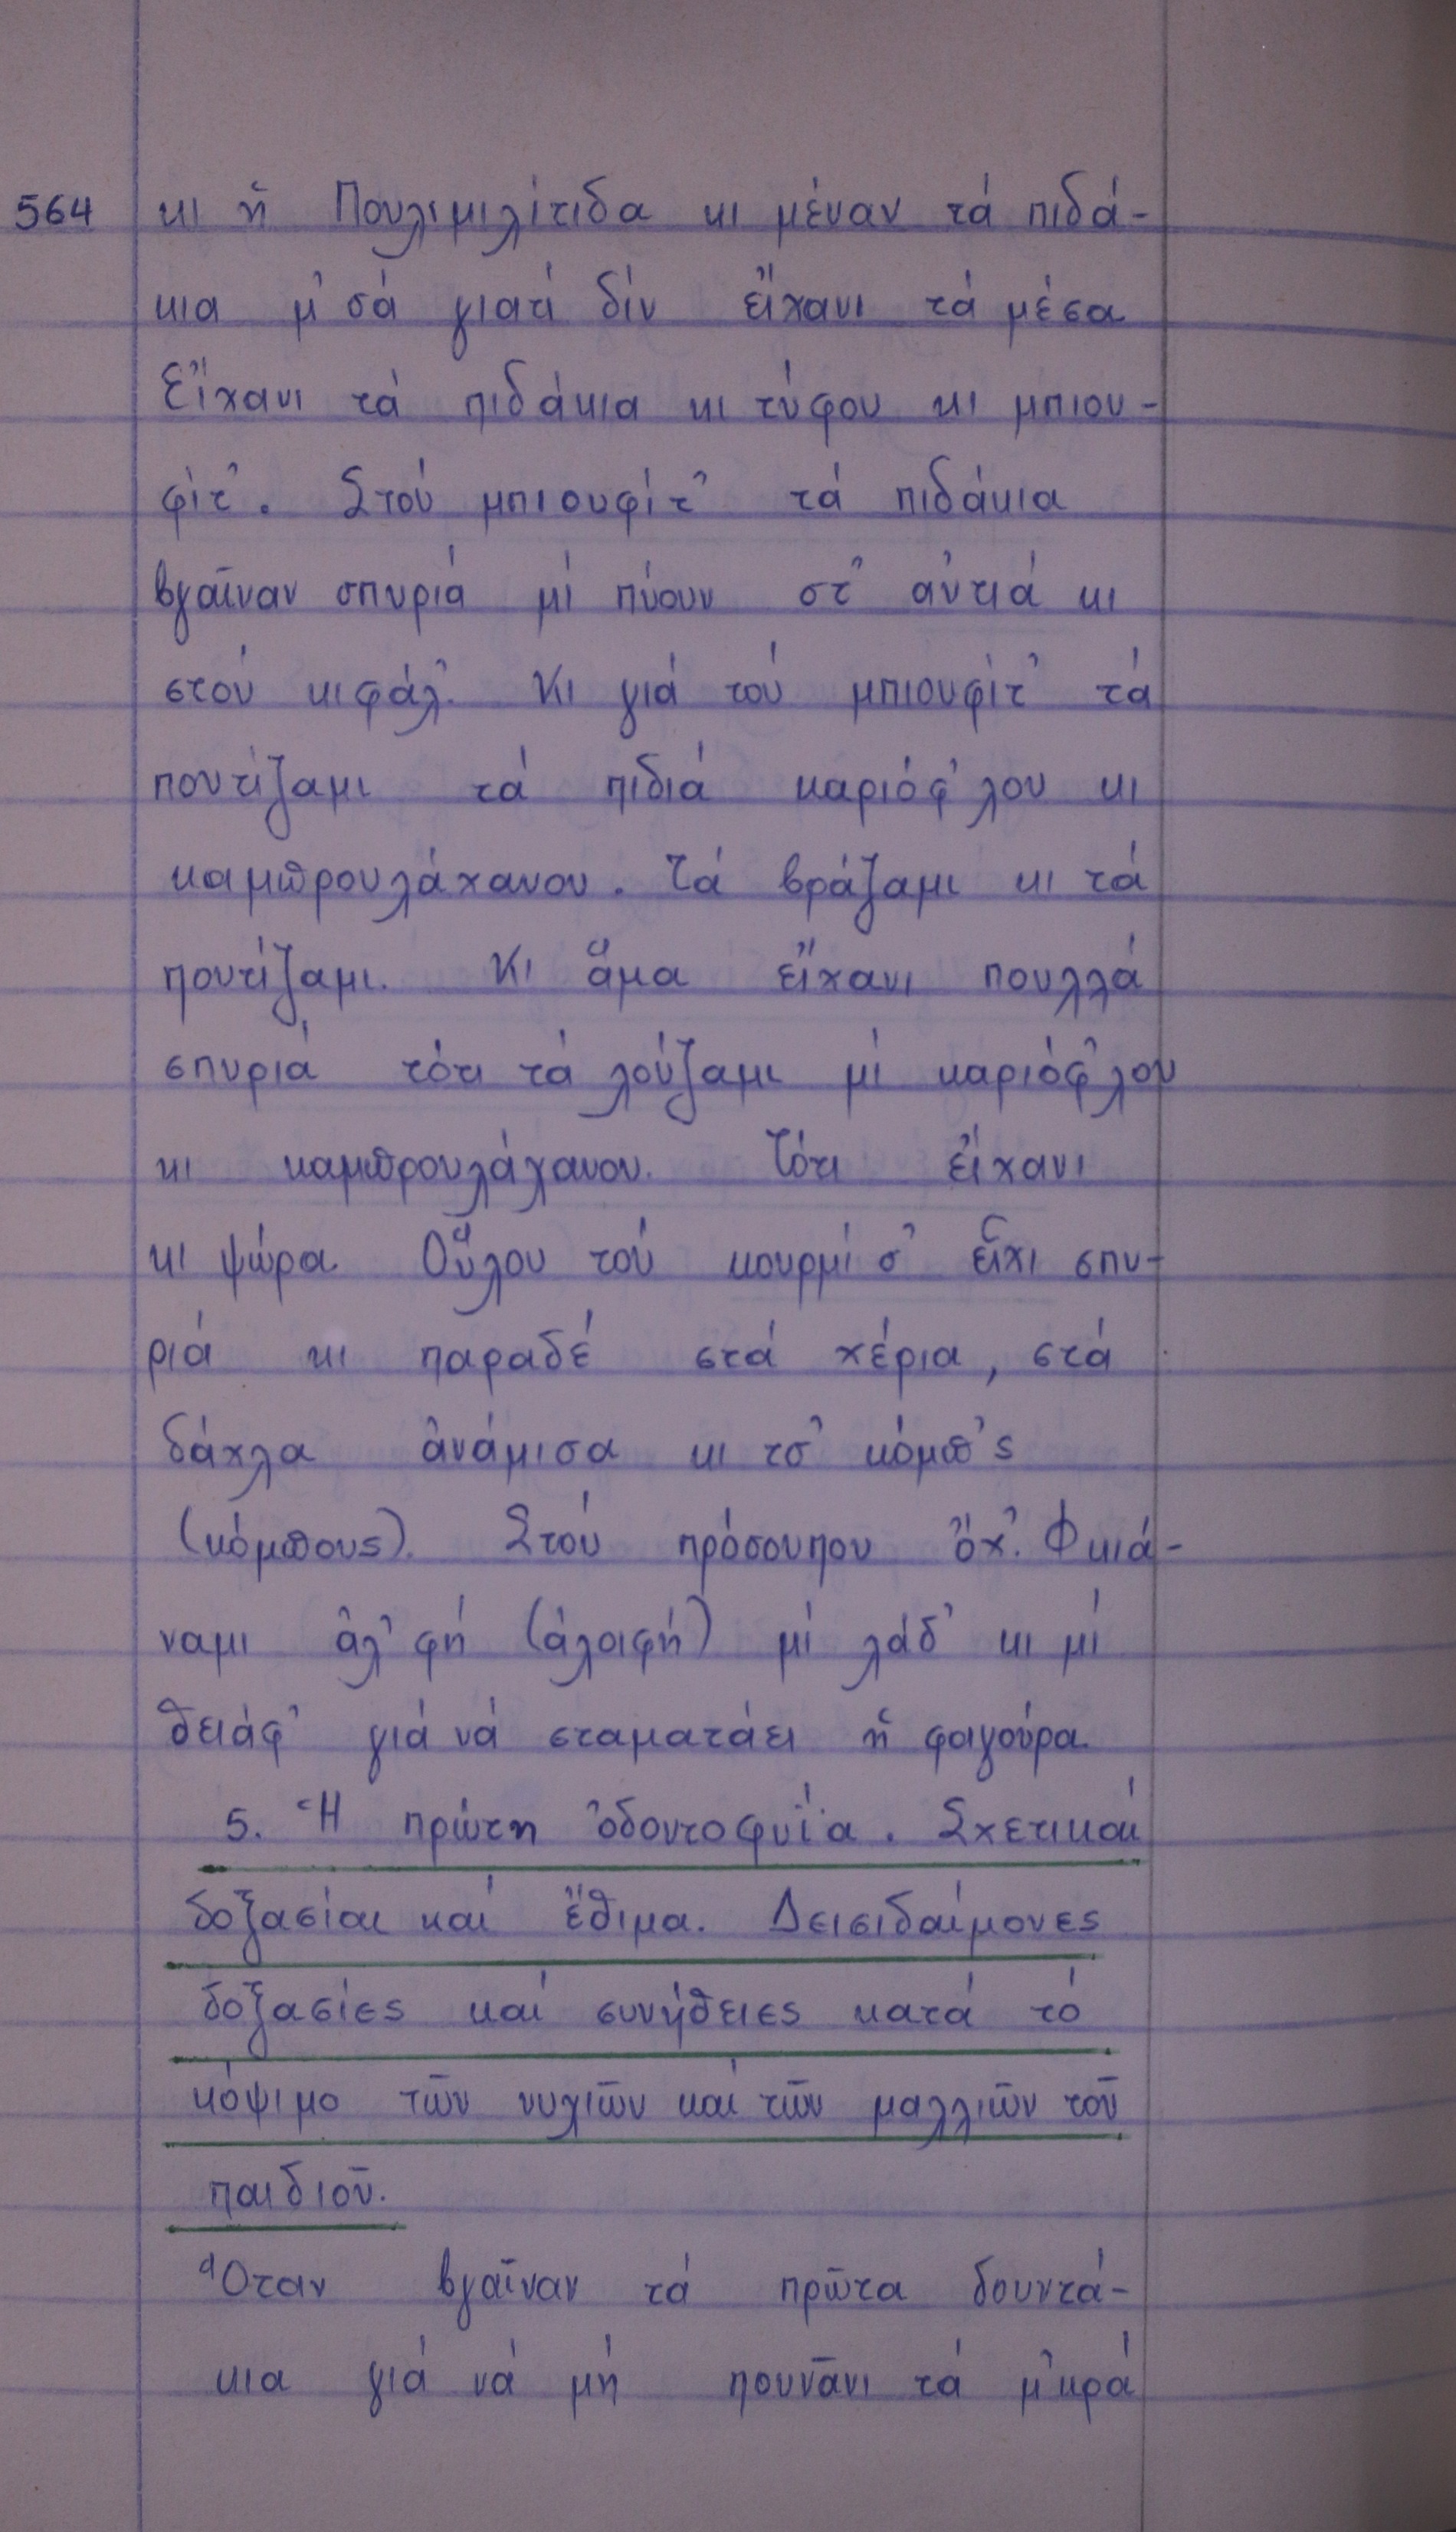 564 κι ἡ Πουλιμιλίτιδα κι μέναν τά πιδά-
κια μ'σά γιατί δίν εἴχανι τά μέσα
Εἴχανι τά πιδάκια κι τύφου κι μπιου-
φίτ'. Στού μπιουφίτ' τά πιδάκια
βγαῖναν σπυριά μί πύουν στ' αὐτιά κι
στού κιφάλ'. Κι γιά τού μπιουφίτ' τά
πουτίζαμι τά πιδιά καριόφ'λου κι
καμπρουλάχανου. Τά βράζαμι κι τά
πουτίζαμι. Κι ἅμα εἴχανι πουλλά
σπυριά τότι τά λούζαμι μί καριόφ'λου
κι καμπρουλάχανου. Τότι εἴχανι
κι ψώρα. Οὕλου τού κουρμί σ' εἶχι σπυ-
ριά κι παραδέ στά χέρια, στά
δάχλα ἀνάμισα κι τσ' κόμπ'ς
(κόμπους). Στού πρόσουπου ὄχ'. Φκιά-
ναμι ἀλ'φή (ἀλοιφή) μί λάδ' κι μί
θειάφ' γιά νά σταματάει ἡ φαγούρα.
5. Ἡ πρώτη ὀδοντοφυΐα. Σχετικαί
δοξασίαι καί ἔθιμα. Δεισιδαίμονες
δοξασίες καί συνήθειες κατά τό
κόψιμο τῶν νυχιῶν καί τῶν μαλλιῶν τοῦ
παιδιοῦ.
Ὅταν βγαῖναν τά πρῶτα δουντά-
κια γιά νά μή πουνᾶνι τά μ'κρά